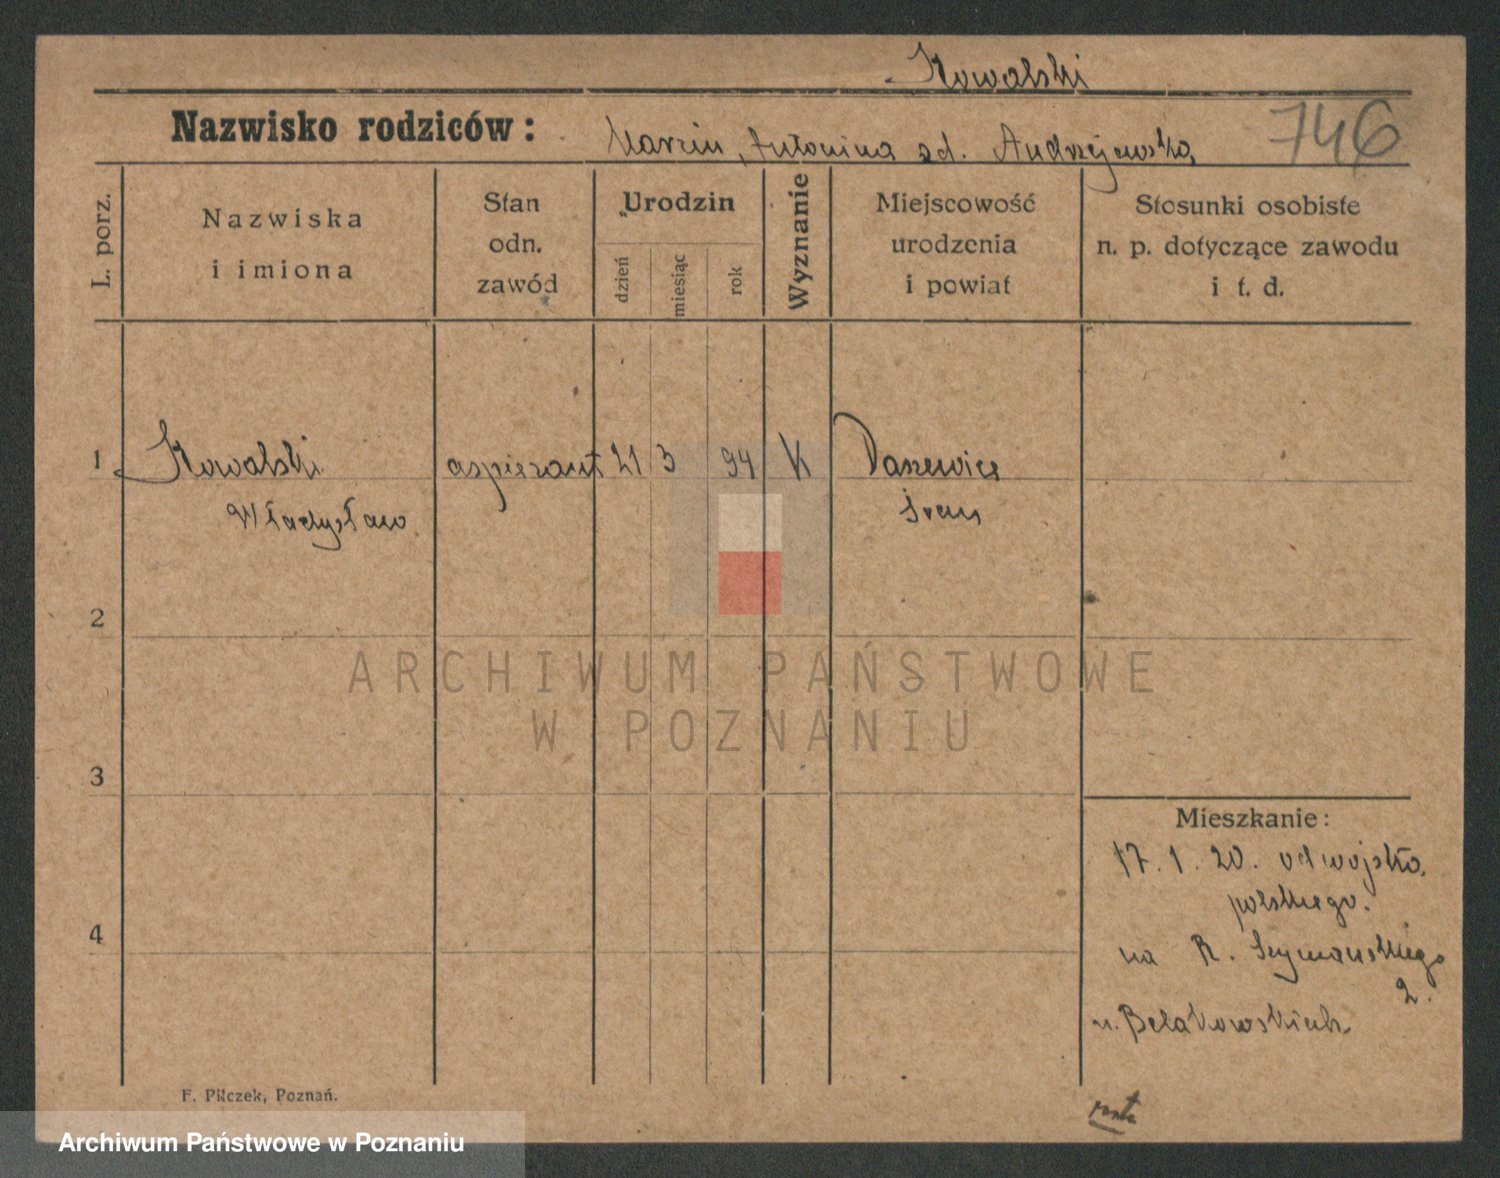 Kowalski
Nazwisko rodziców: Marcin, Antonina zd. Andrzejewska
746
L. porz.
Nazwiska
i imiona
Stan
odn.
zawód
Urodzin
dzień
miesiąc
rok
Wyznanie
Miejscowość
urodzenia
i powiat
Stosunki osobiste
n. p. dotyczące zawodu
i t. d.
1 Kowalski aspirant 21 3 94 K Daszewice
Władysław Śrem
2
ARCHIWUM PAŃSTWOWE
W POZNANIU
3
Mieszkanie:
17. 1. 20. od wojska
polskiego.
4
na R. Szymańskiego
2.
u.
F. Pilczek, Poznań.
Archiwum Państwowe w Poznaniu